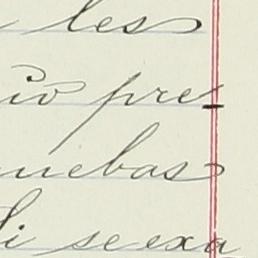 les
io pre-
uebas
di se exa